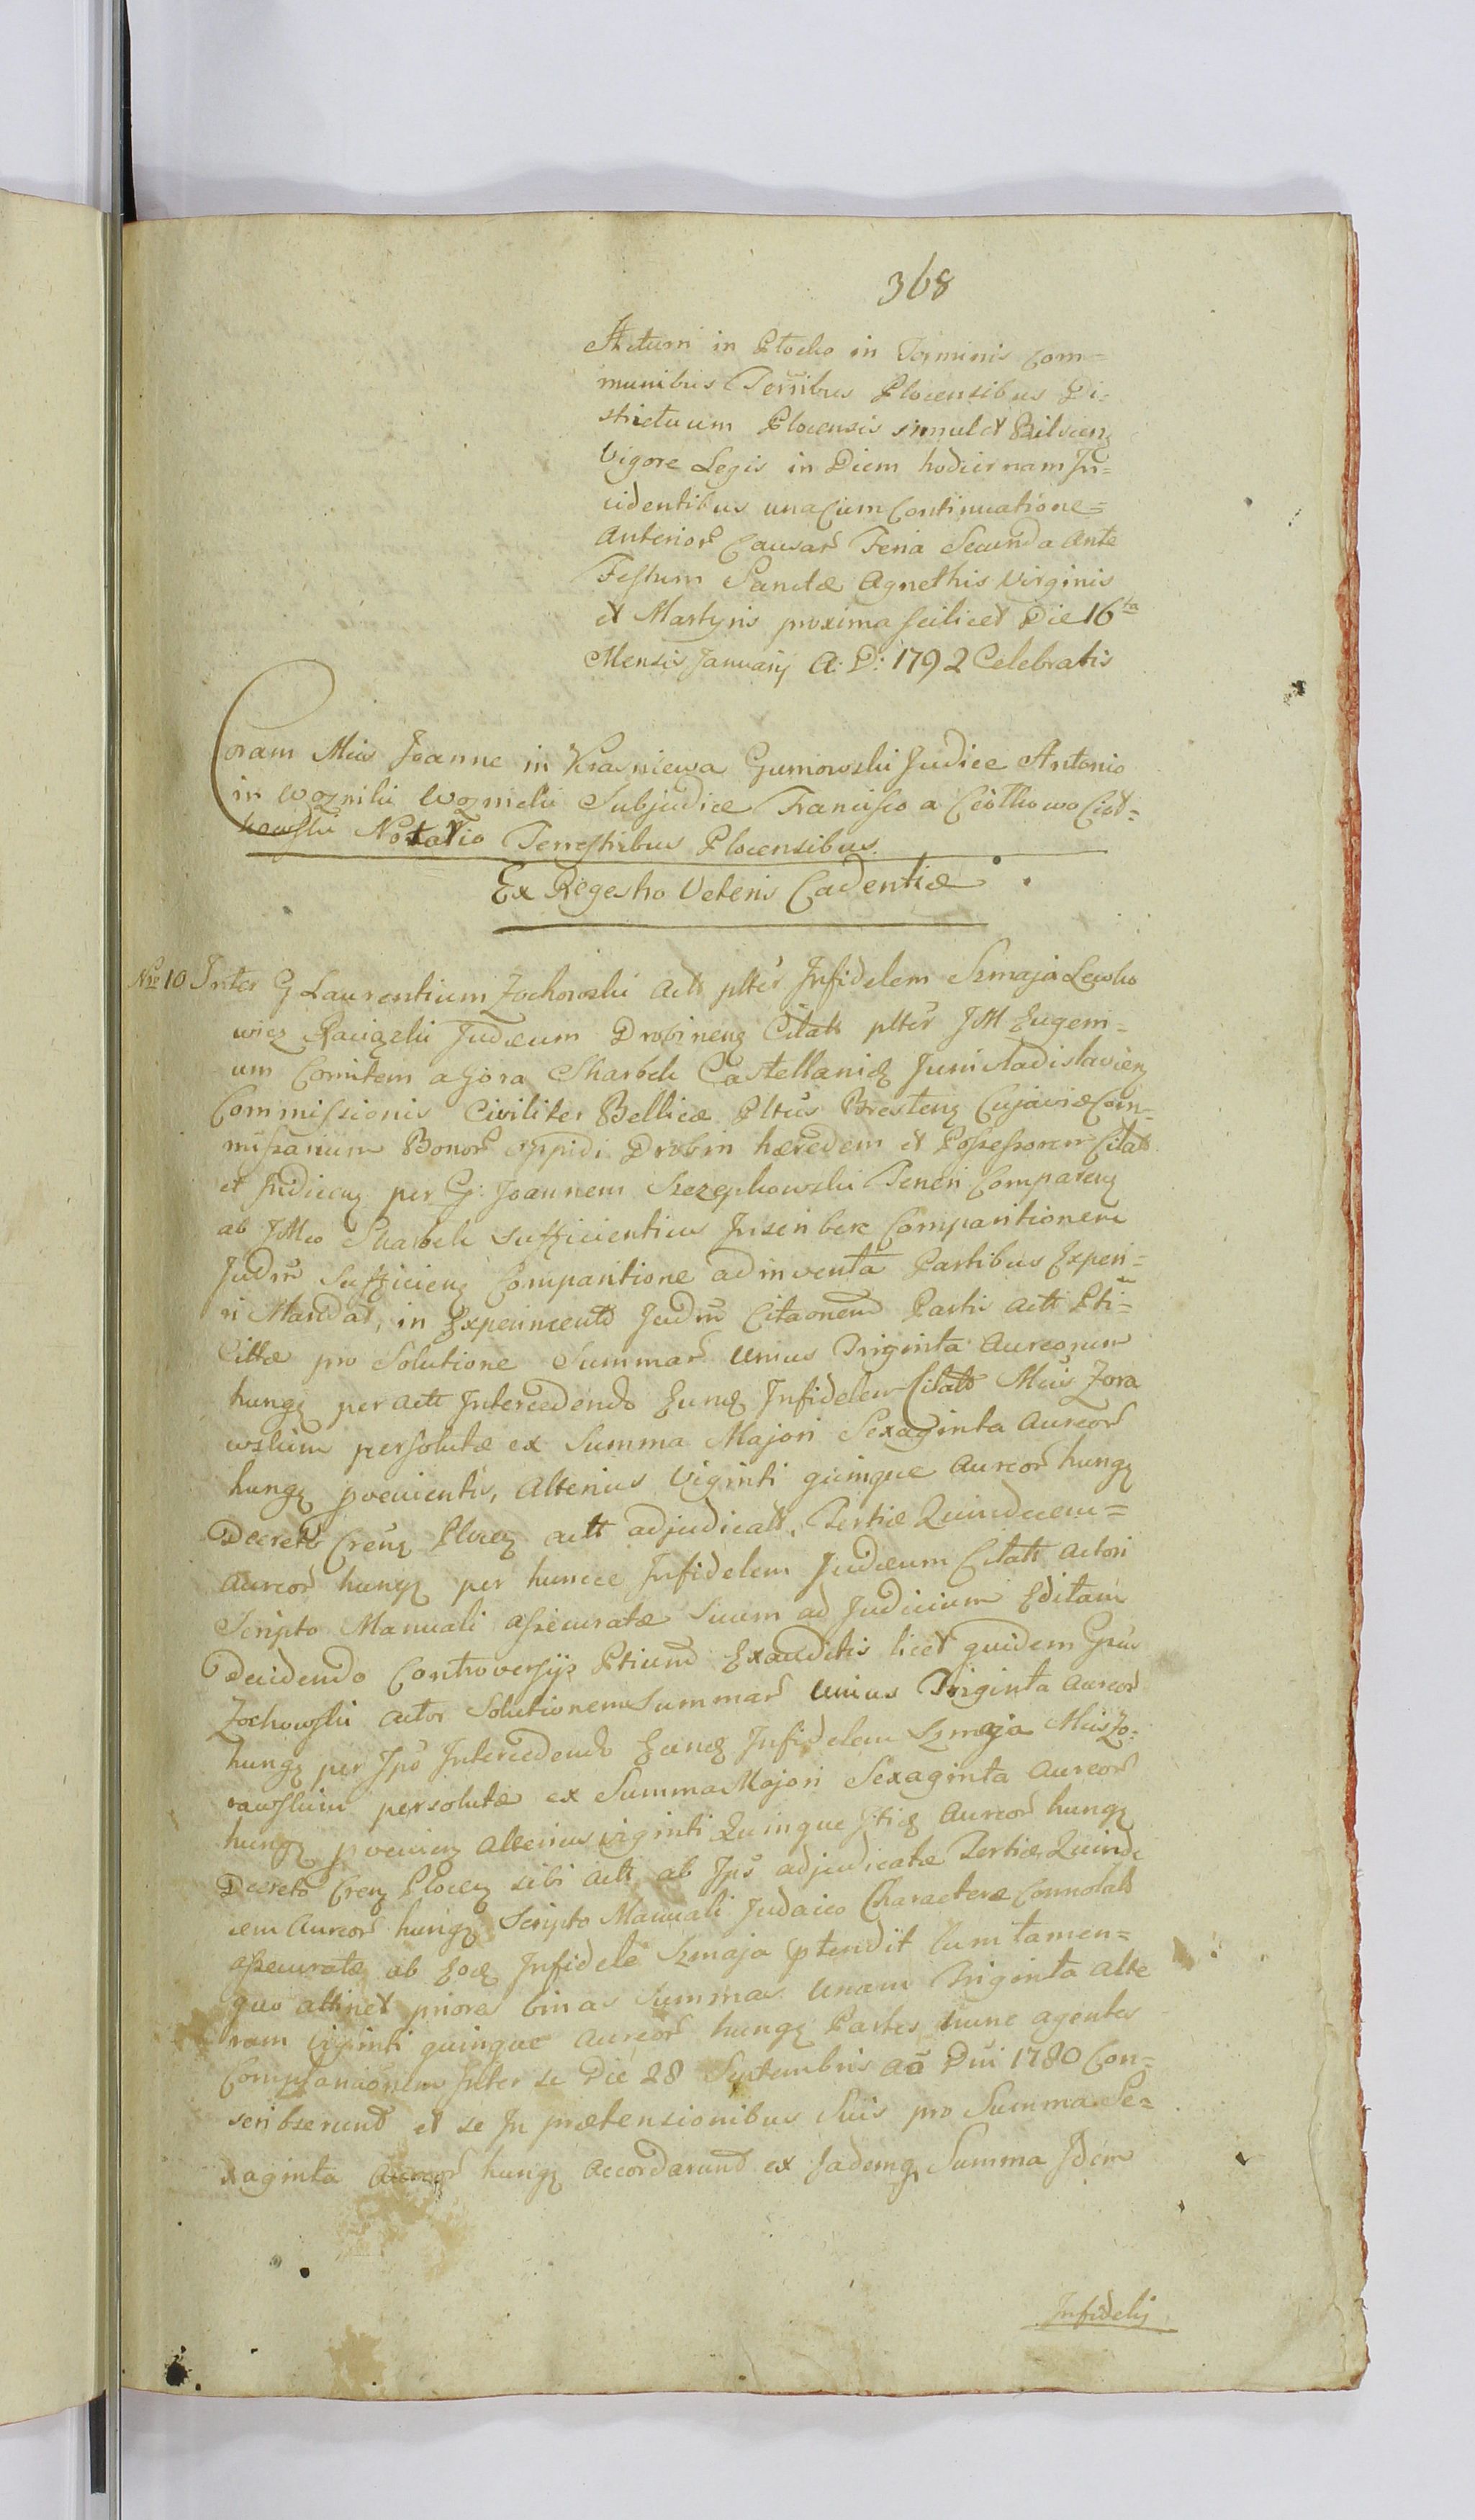 368
Actum in Płocko in Terminis Com=
munibus Terribus Plocensibus Di=
strictuum Plocensis simulet Bilscen
Vigore Legis in Diem hodiernam In=
cidentibus una Cum Continuatione=
Anterior Causar Feria Secunda Ante
Festum Sanctæ Agnethis Virginis
et Martyris proxima scilicet Die 16ta
Mensis Januarij A: D: 1792 Celebratis
Coram Mcis Joanne in Krasniewa Gumowski Judice Antonio
in Woznilii Woznicki Subjudice Francisco a Ciołkowo Cioł=
kowski Notario Terrestribus Plocensibus.
Ex Regestro Veteris Cadentiæ.
Nro 10 Inter G Laurentium Zochowski Actt plter Infidelem Szmaja Lewko
wicz Raciązki Judæum Drobinen Citatt plter JM Eugeni=
um Comitem a Gora Skarbek Castellanid Juniwladislavien
Commissionis Civiliter Bellicæ Pltus Bresten Cujaviæ Com=
missarium Bonor oppidi Drobin hæredem et Possessorem Citatt
et Judicen per G: Joannem Szczepkowski Teneri Comparen
ab JMco Skarbek Sufficientius Inscribere Comparitionem
Judm Sufficien Comparitione adinventa Partibus Experi=
ri Mandat, in Experimento Judm Citaonem Partis Actt Pti=
Cittæ pro Solutione Summar Unius Triginta Aureorum
hung per Actt Intercedendo Eund Infidelem Citatt Mcis Zora
wskim persolutæ ex Summa Majori Sexaginta Aureor
hung provenientis, Alterius Viginti quinque Aureor hung
Decreto Cren Plocen Actt adjudicatt, Tertiæ Quindecem=
Aureor hung per huncce Infidelem Judæum Citatt Actori
Scripto Manuali assecuratæ Suum ad Judicium Editam
Decidendo Controversijs Ptium Exauditis licet quidem Gnus
Zochowski Actor Solutionem Summar Unius Triginta Aureor
hung per Ipm Intercedendo Eund Infidelem Szmaja Mcis Zo=
rawskim persolutæ ex Summa Majori Sexaginta Aureor
hung provenien Alterius viginti Quinque Aureor hung
Decreto Cren Plocen sibi Actt ab Ipo adjudicatæ Tertiæ Quinde
cem Aureor hung Scripto Manuali Judaico Charactere Connotatt
assecuratæ ab Eod Infidele Szmaja ptendit tum tamen=
quo attinet priores binas Summas Unam Triginta Alte
ram Viginti quinque Aureor hung Partes nunc agentes
Complanaonem Inter se Die 28 Septembris Ao Dni 1780 Con=
scribserunt et se In prætensionibus Suis pro Summa Se=
xaginta Aureor hung Accordarunt ex Eademq Summa Idem
Infidelis